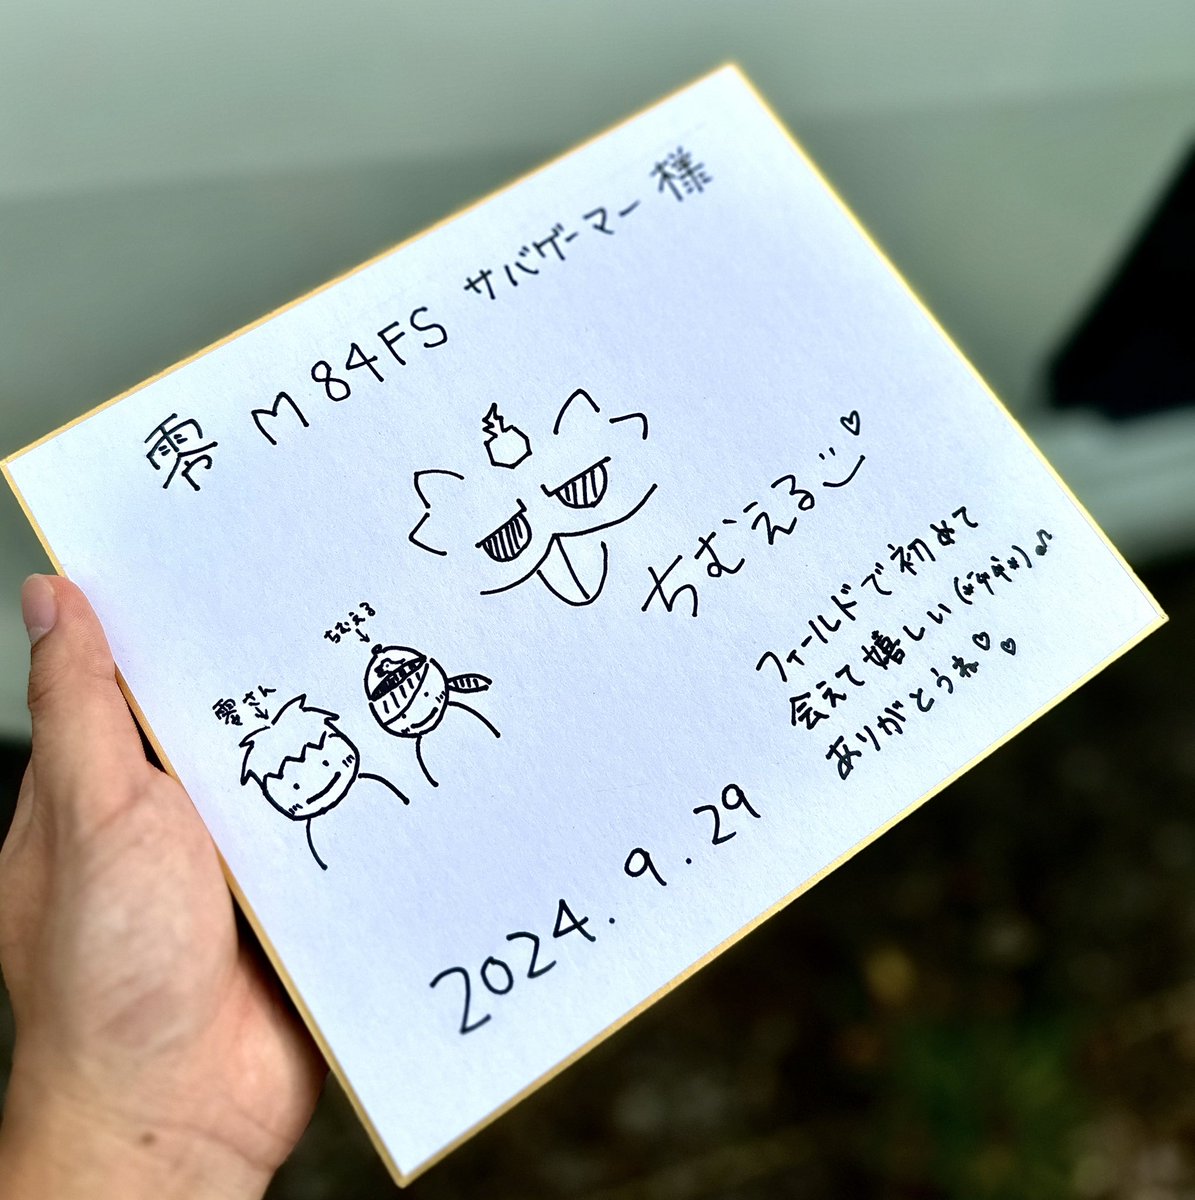 零 M84FS サバゲーマー 様
ちむえる♡
フィールドで初めて
会えて嬉しい
ありがとうね♡♡
ちむえる
↓
零さん
↓
2024. 9. 29